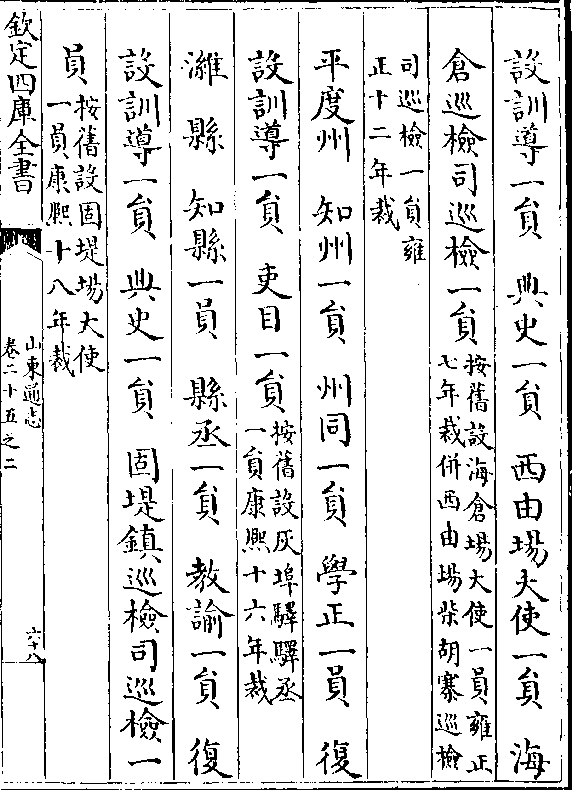 設訓導一員　典史一員　西由場大使一員　海
倉巡檢司巡檢一員按舊設海倉場大使一員雍正
七年裁併西由場柴胡寨巡檢
司巡檢一員雍
正十二年裁
平度州　知州一員　州同一員　學正一員　復
設訓導一員　吏目一員按舊設灰埠驛驛丞
一員康熙十六年裁
濰縣　知縣一員　縣丞一員　教諭一員　復
設訓導一員　典史一員　固堤鎮巡檢司巡檢一
員按舊設固堤場大使
一員康熙十八年裁
欽定四庫全書
山東通志
卷二十五之二
六十八